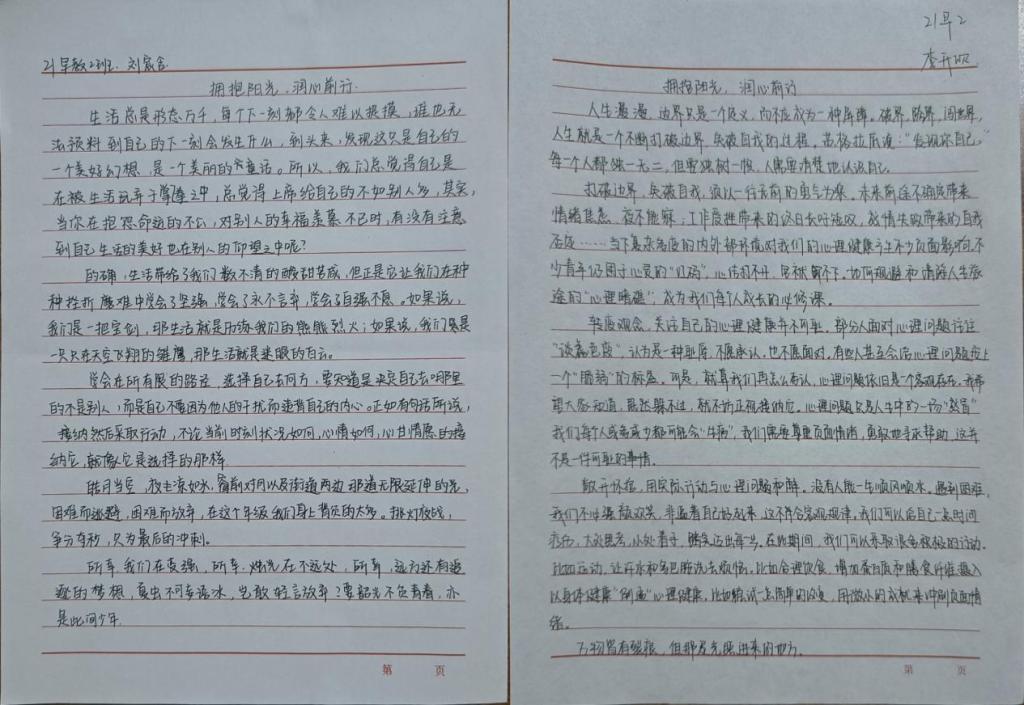 21早教2班 刘家含
拥抱阳光,润心前行.
生活总是形态万千,每个下一刻都令人难以捉摸,谁也无
法预料到自己的下一刻会发生什么,到头来,发现这只是自己的
一个美好幻想,是一个美丽的童话。所以,我们总觉得自己是
在被生活玩弄于掌握之中,总觉得上帝给自己的不如别人多,其实,
当你在抱怨命运的不公,对别人的幸福羡慕不已时,有没有注意
到自己生活的美好也在别人的仰望之中呢?
的确,生活带给了我们数不清的酸甜苦咸,但正是它让我们在种
种挫折磨难中学会了坚强,学会了永不言弃,学会了自强不息。如果说,
我们是一把宝剑,那生活就是历练我们的熊熊烈火;如果说,我们是
一只只在天空飞翔的雏鹰,那生活就是迷眼的白云。
学会在所有限的路径,选择自己去何方,要知道是决定自己去哪里
的不是别人,而是自己不要因为他人的干扰而违背自己的内心。正如有句话所说,
接纳然后采取行动,不论当前时刻状况如何,心情如何,心甘情愿的接
纳它,就像它是选择的那样.
皓月当空,夜生凉如水,窗前对月以及街道两边那道无限延伸的光,
困难而逃避,困难而放弃,在这个年级我们身上背负的太多。挑灯夜战,
争分夺秒,只为最后的冲刺。
所幸,我们在变强,所幸.烛光在不远处,所幸,远方还有追
逐的梦想,夏虫不可与语冰,岂敢轻言放弃?要韶光不负青春,亦
是此间少年.
第 页
21早2
李开
拥抱阳光,润心前行
人生漫漫,边界只是一个定义,而不应成为一种屏障。破界,跨界,阔世界,
人生就是一个不断打破边界,突破自我的过程,苏格拉底说:“发现你自己”,
每一个人都独一无二,但要独树一帜,人需要清楚地认识自己。
打破边界,突破自我,须以一往无前的勇气为桨。未来前途不确定带来
情绪焦虑,夜不能寐;工作疲惫带来的终日长吁短叹,感情失败带来的自我
否定……当下复杂多变的内外部环境对我们的心理健康产生不少负面影响,不
少青年仍困于心灵的“低谷”,心结打不开,思绪解不下,如何规避和清除人生旅
途的“心理暗礁”,成为我们每个人成长的必修课。
转变观念,关注自己的心理健康并不可耻,部分人面对心理问题往往
“谈虎色变”,认为是一种耻辱,不愿承认,也不愿面对,有些人甚至会给心理问题贴上
一个“脆弱”的标签。可是,就算我们再怎么否认,心理问题依旧是一个客观存在。我希
望大家知道,既然躲不过,就不妨正视接纳它。心理问题只是人生中的一场“感冒”
我们每个人或多或少都可能会“生病”,我们需要尊重负面情绪,勇敢地寻求帮助,这并
不是一件可耻的事情。
敞开怀抱,用实际行动与心理问题和解。没有人能一生顺风顺水。遇到困难,
我们不必强颜欢笑,非逼着自己好起来,这不符合客观规律,我们可以给自己一点时间
疗伤,大处思考,小处着手,踏实迈出每一步。在此期间,我们可以采取很多积极的行动。
比如运动,让汗水和多巴胺洗去烦恼。比如合理饮食,增加蛋白质和膳食纤维摄入
以身体健康“倒逼”心理健康。比如尝试一点简单的改变,用微小的成就来冲刷负面情
绪。
万物皆有裂痕,但那是光照进来的地方.
第 页